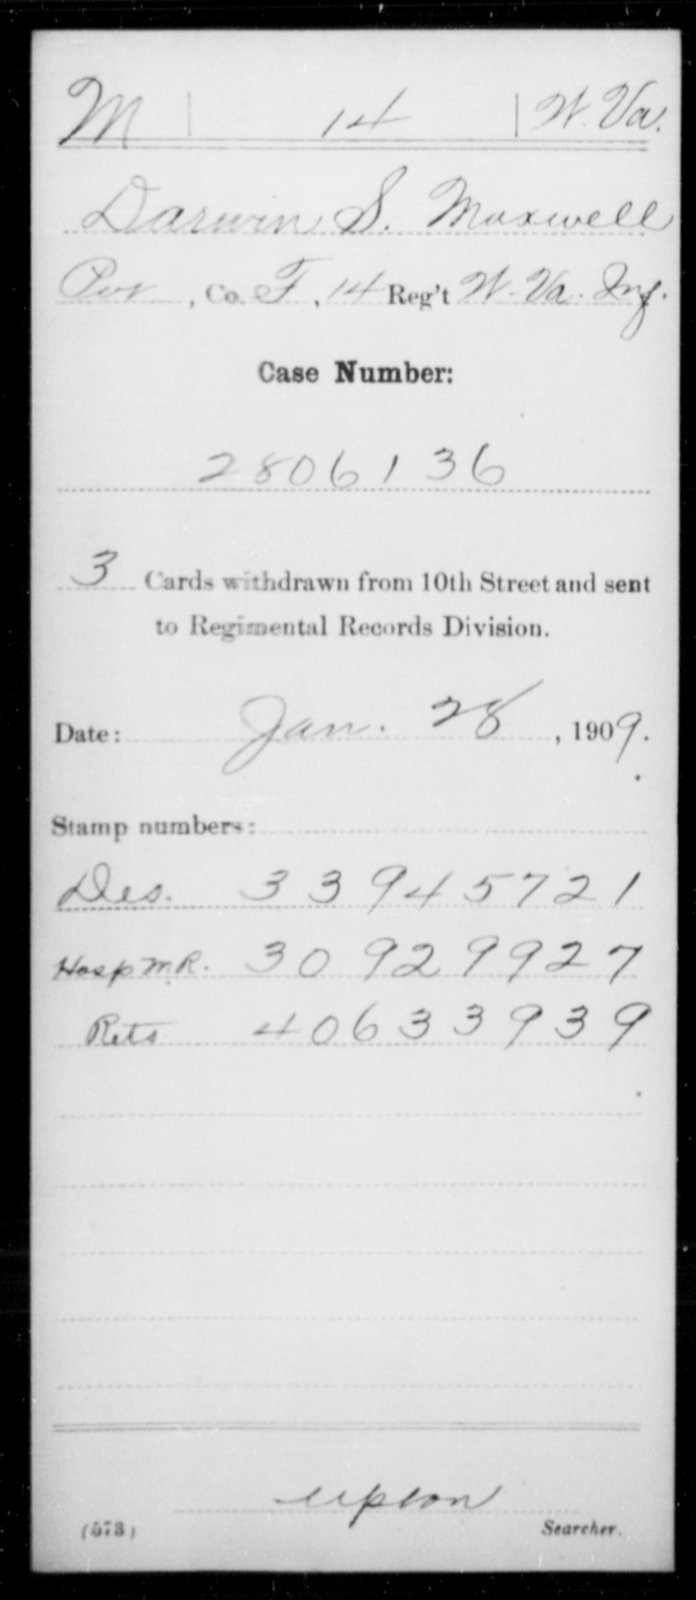 M | 14 | W. Va.
Darwin S. Maxwell
Pvt, Co. F, 14 Reg't W. Va. Inf.
Case Number:
2806136
3 Cards withdrawn from 10th Street and sent
to Regimental Records Division.
Date: Jan. 28, 1909.
Stamp numbers:
Des. 33945721
Hosp M.R. 30929927
Rets 40633939
Upton
(573) Searcher.